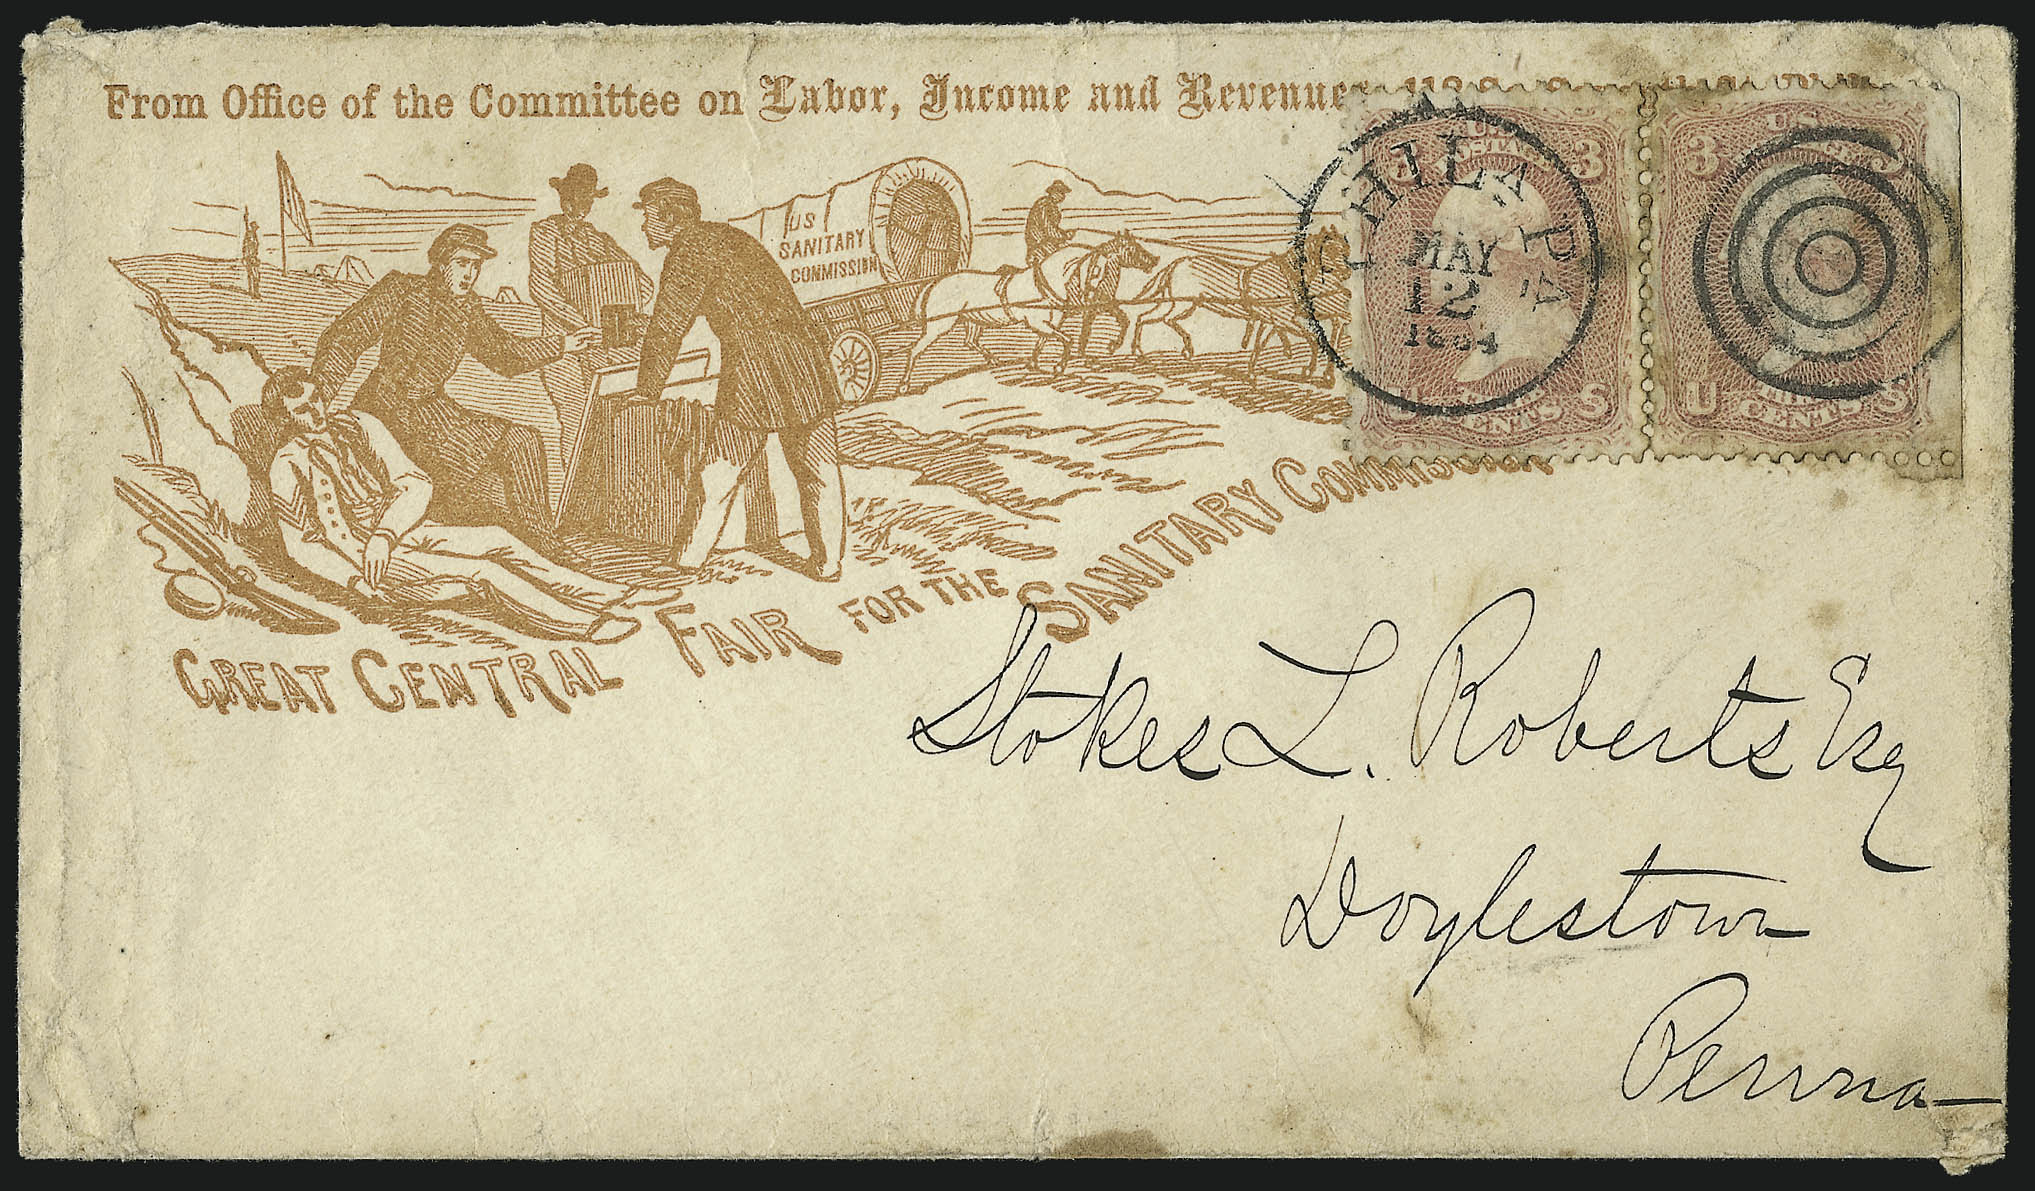 From Office of the Committee on Labor, Income and Revenue
US
SANITARY
COMMISSION
GREAT CENTRAL FAIR FOR THE SANITARY COMMISSION
PHILA PA
MAY
12
1864
3 U.S. 3
POSTAGE
U S
CENTS
3 U.S. 3
POSTAGE
U S
CENTS
Stokes L. Roberts Esq
Doylestown
Penna